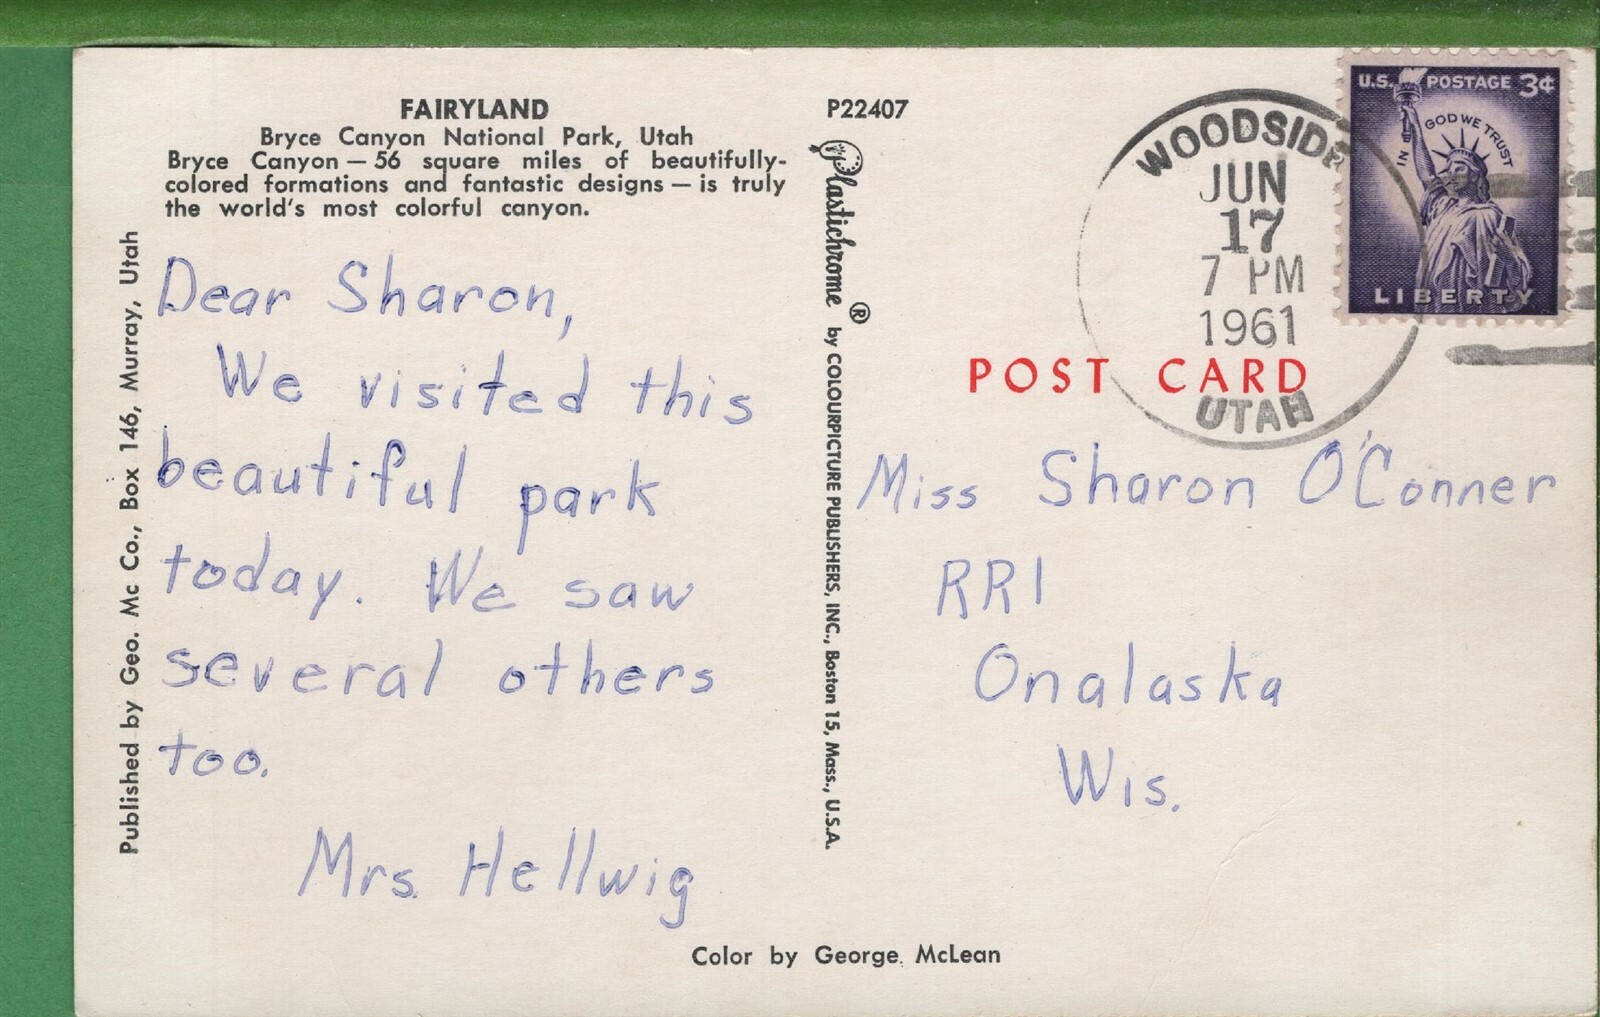 FAIRYLAND
Bryce Canyon National Park, Utah
Bryce Canyon — 56 square miles of beautifully-
colored formations and fantastic designs — is truly
the world's most colorful canyon.
Published by Geo. Mc Co., Box 146, Murray, Utah
Dear Sharon,
We visited this
beautiful park
today. We saw
several others
too.
Mrs. Hellwig
P22407
Plastichrome ® by COLOURPICTURE PUBLISHERS, INC., Boston 15, Mass., U.S.A.
WOODSIDE
JUN
17
7 PM
1961
UTAH
U.S. POSTAGE 3¢
IN GOD WE TRUST
LIBERTY
POST CARD
Miss Sharon O'Conner
RR1
Onalaska
Wis.
Color by George McLean